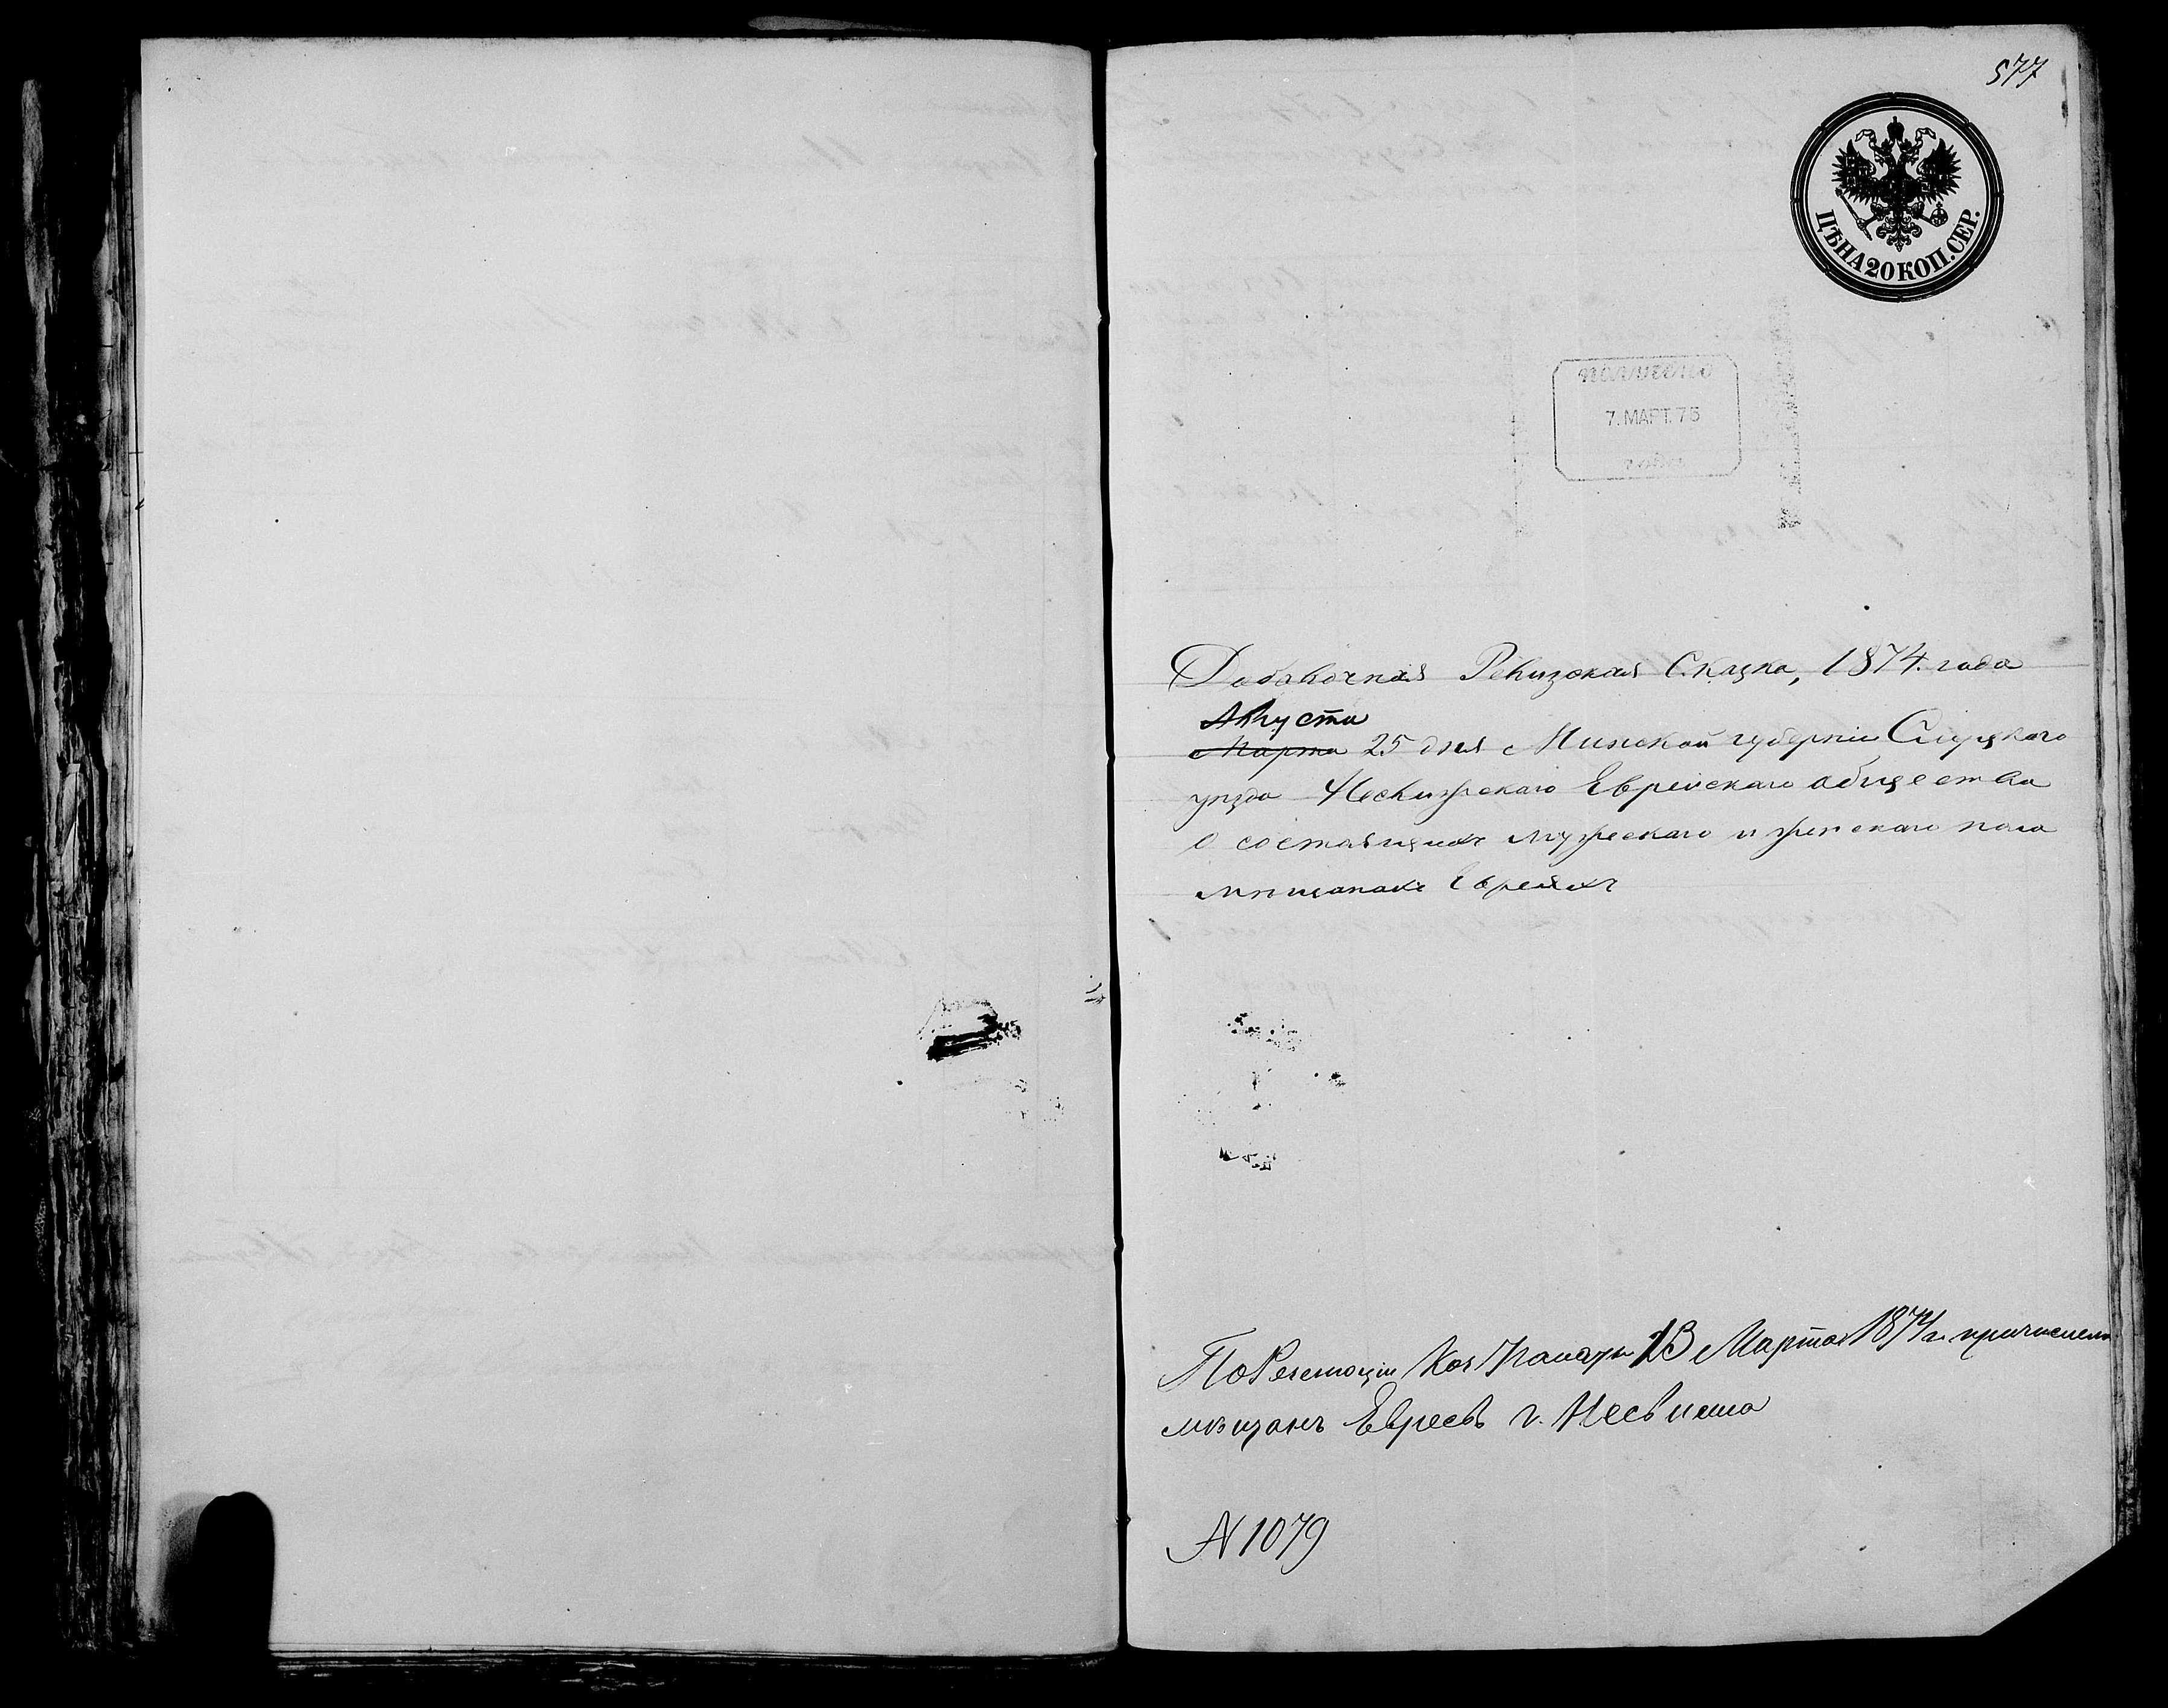 577
ЦѢНА 20 КОП. СЕР.
получено
7. МАРТ. 75
Добавочная Ревизская Сказка, 1874. года
Августа
Марта 25 дня Минской губерніи Слуцкаго
уѣзда Несвижскаго Еврейскаго общества
о состоящихъ мужескаго и женскаго пола
мѣщанахъ Евреяхъ
По Резолюціи Каз Палаты 13 Марта 1874 г. причислен
мѣщанъ Евреевъ г. Несвижа
N 1079